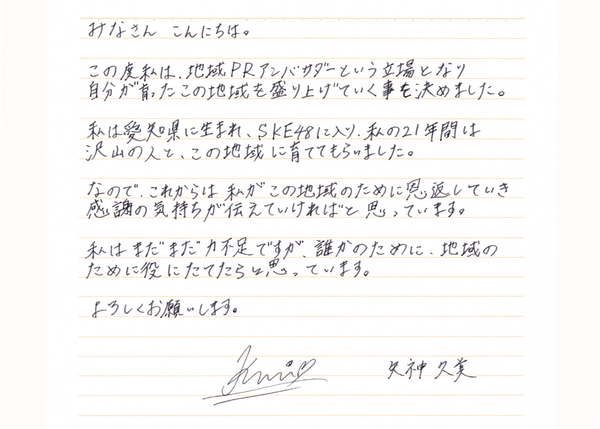 みなさん こんにちは。
この度私は、地域PRアンバサダーという立場となり
自分が育ったこの地域を盛り上げていく事を決めました。
私は愛知県に生まれ、SKE48に入り、私の21年間は
沢山の人と、この地域に育ててもらいました。
なので、これからは私がこの地域のために恩返していき
感謝の気持ちが伝えていければと思っています。
私はまだまだ力不足ですが、誰かのために、地域の
ために役にたてたらと思っています。
よろしくお願いします。
Kumi 矢神久美